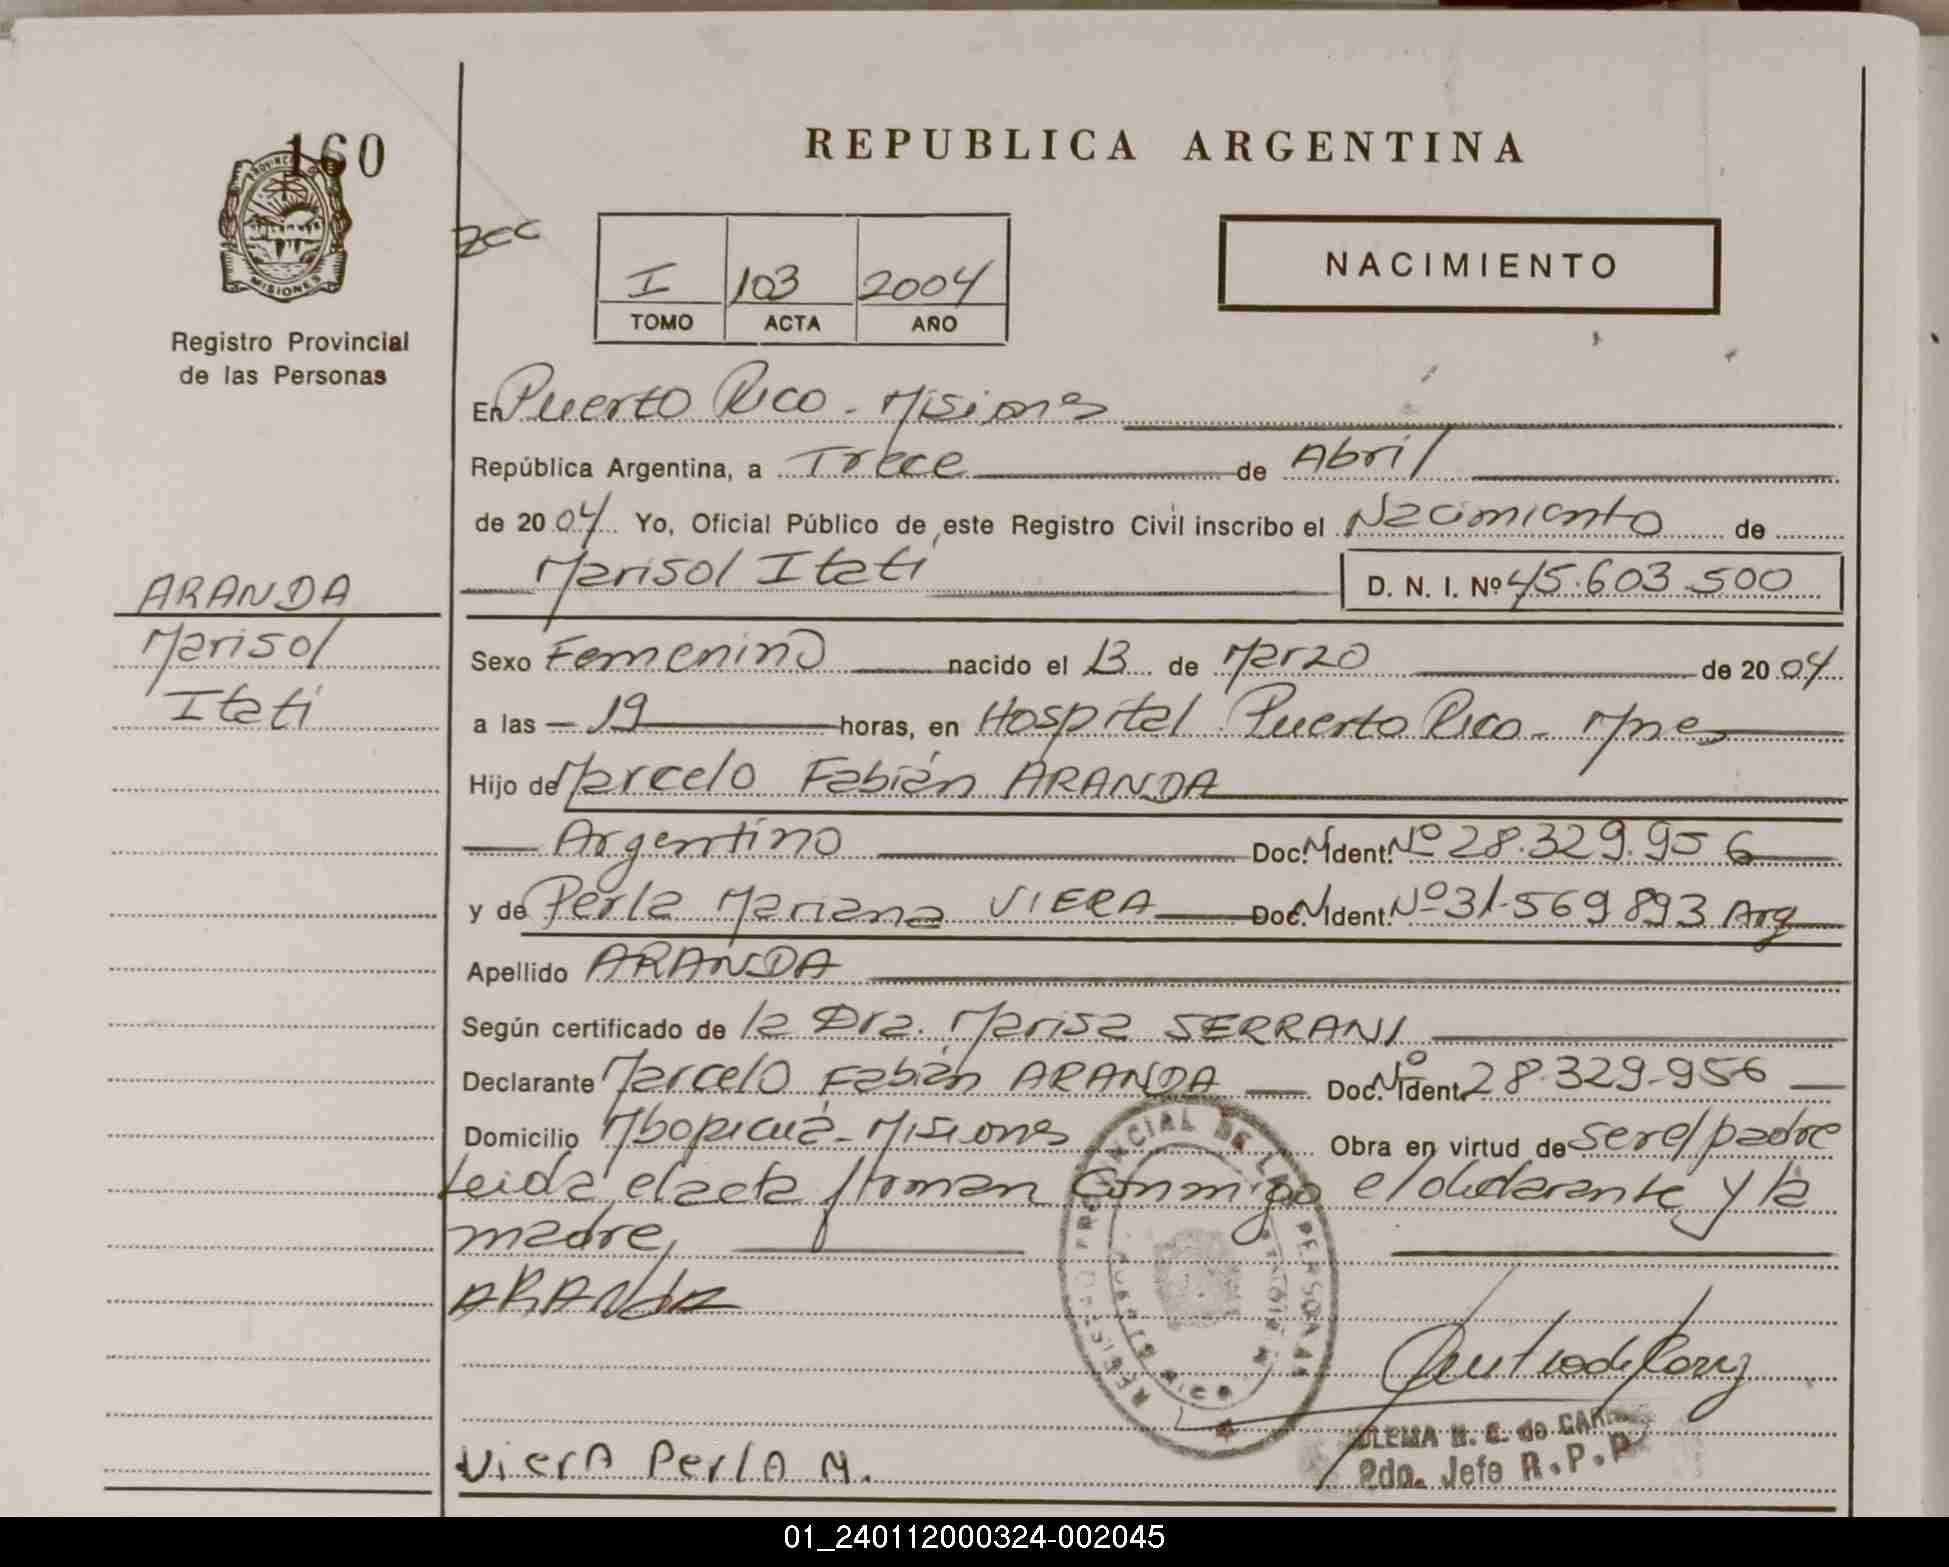 160
PROVINCIA DE
MISIONES
Registro Provincial
de las Personas
REPUBLICA ARGENTINA
zcc
I 103 2004
TOMO ACTA AÑO
NACIMIENTO
En Puerto Rico - Misiones
República Argentina, a Trece de Abril
de 2004 Yo, Oficial Público de este Registro Civil inscribo el Nacimiento de
Marisol Itatí D. N. I. Nº 45.603.500
ARANDA
Marisol
Itatí
Sexo Femenino nacido el 13 de Marzo de 2004
a las 19 horas, en Hospital Puerto Rico - Mnes
Hijo de Marcelo Fabián ARANDA
Argentino Doc. N Ident. Nº 28.329.956
y de Perla Mariana VIERA Doc. N Ident. Nº 31.569 893 Arg
Apellido ARANDA
Según certificado de la Dra. Marisa SERRANI
Declarante Marcelo Fabián ARANDA Doc. Nº Ident. 28.329.956
Domicilio Mbopicuá - Misiones Obra en virtud de ser el padre
Leida el acta firman conmigo el declarante y la
madre,
ARANDA
REGISTRO PROVINCIAL DE LAS PERSONAS
PUERTO RICO
Viera Perla M.
H. C. de
2da. Jefe R.P.P
01_240112000324-002045